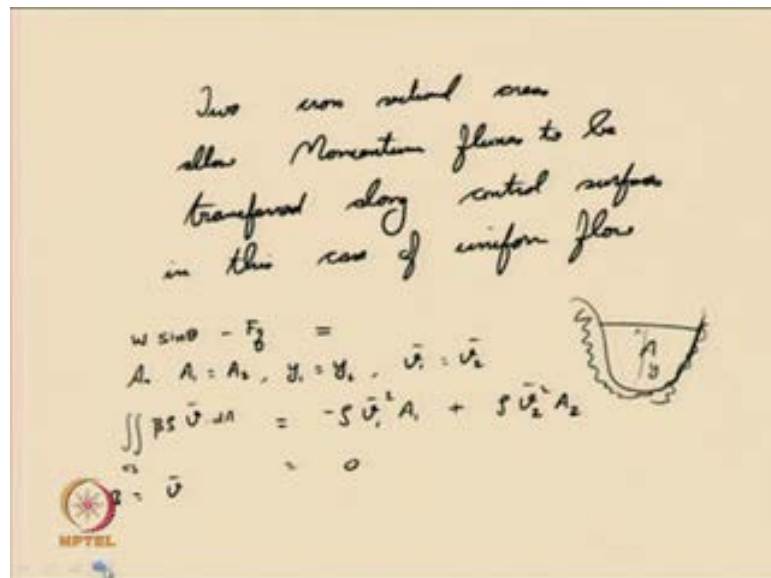 Two cross sectional areas
allow Momentum fluxes to be
transferred along control surfaces
in this case of uniform flow
W sinθ - F =
As A₁ = A₂, y₁ = y₂, v̄₁ = v̄₂
∬ βρ v̄.dA = -ρ v̄₁² A₁ + ρ v̄₂² A₂
cs = 0
= v̄
A
y
NPTEL